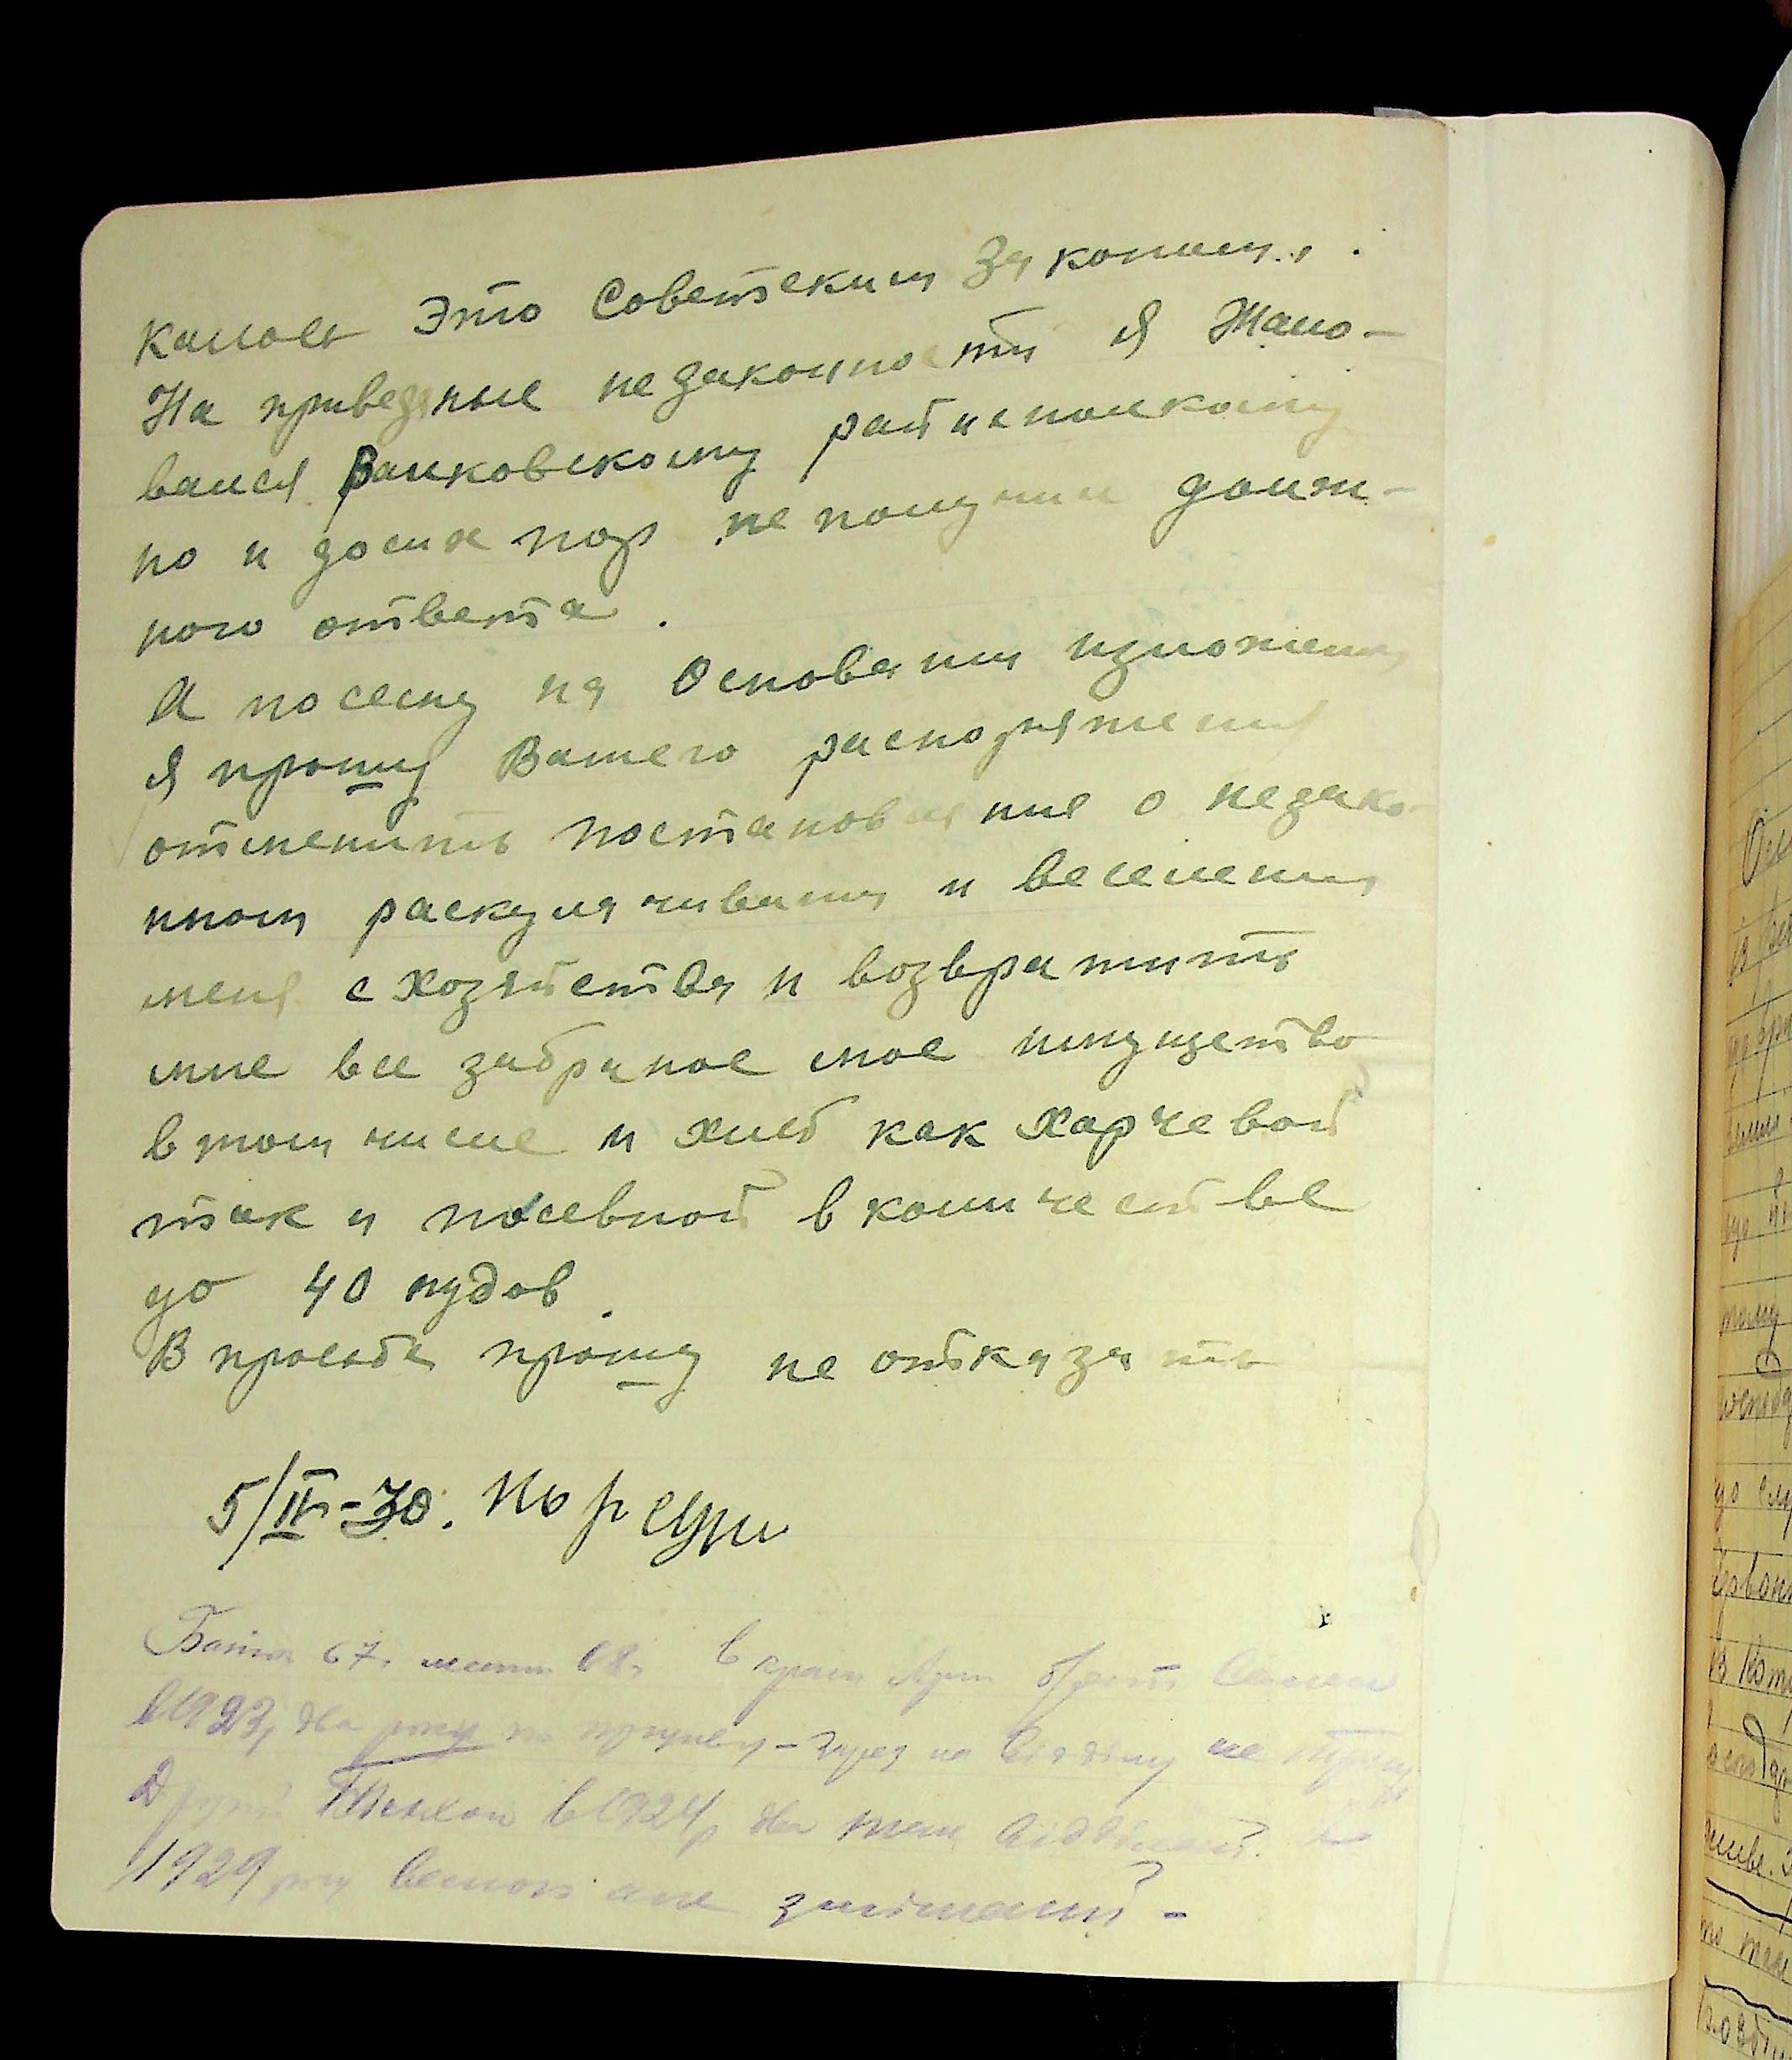 каково это Советским Законам.
На приведеные незаконности я Жало-
вался Валковскому райисполкому
но и досих пор не получил долж-
ного ответа.
А посему на Основании изложеного
я прошу Вашего распоряжения
отменить постановление о незако-
нном раскулачивании и вселении
меня с хозяйства и возвратить
мне все забраное мое имущество
в том числе и хлеб как харчевой
так и посевной в количестве
до 40 пудов.
В просьбе прошу не отказать
5/IV-30.
67, 68, в брат
в 1923, два року не
Другий в 1924,
1929 року весною але